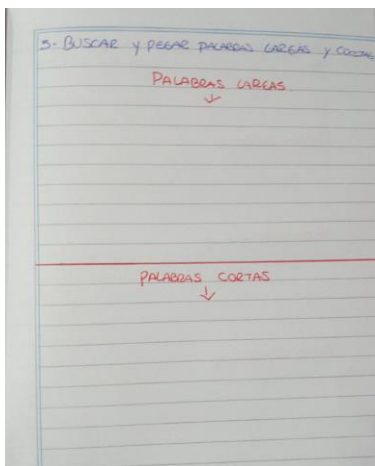 3- BUSCAR Y PEGAR PALABRAS LARGAS Y CORTAS
PALABRAS LARGAS
PALABRAS CORTAS